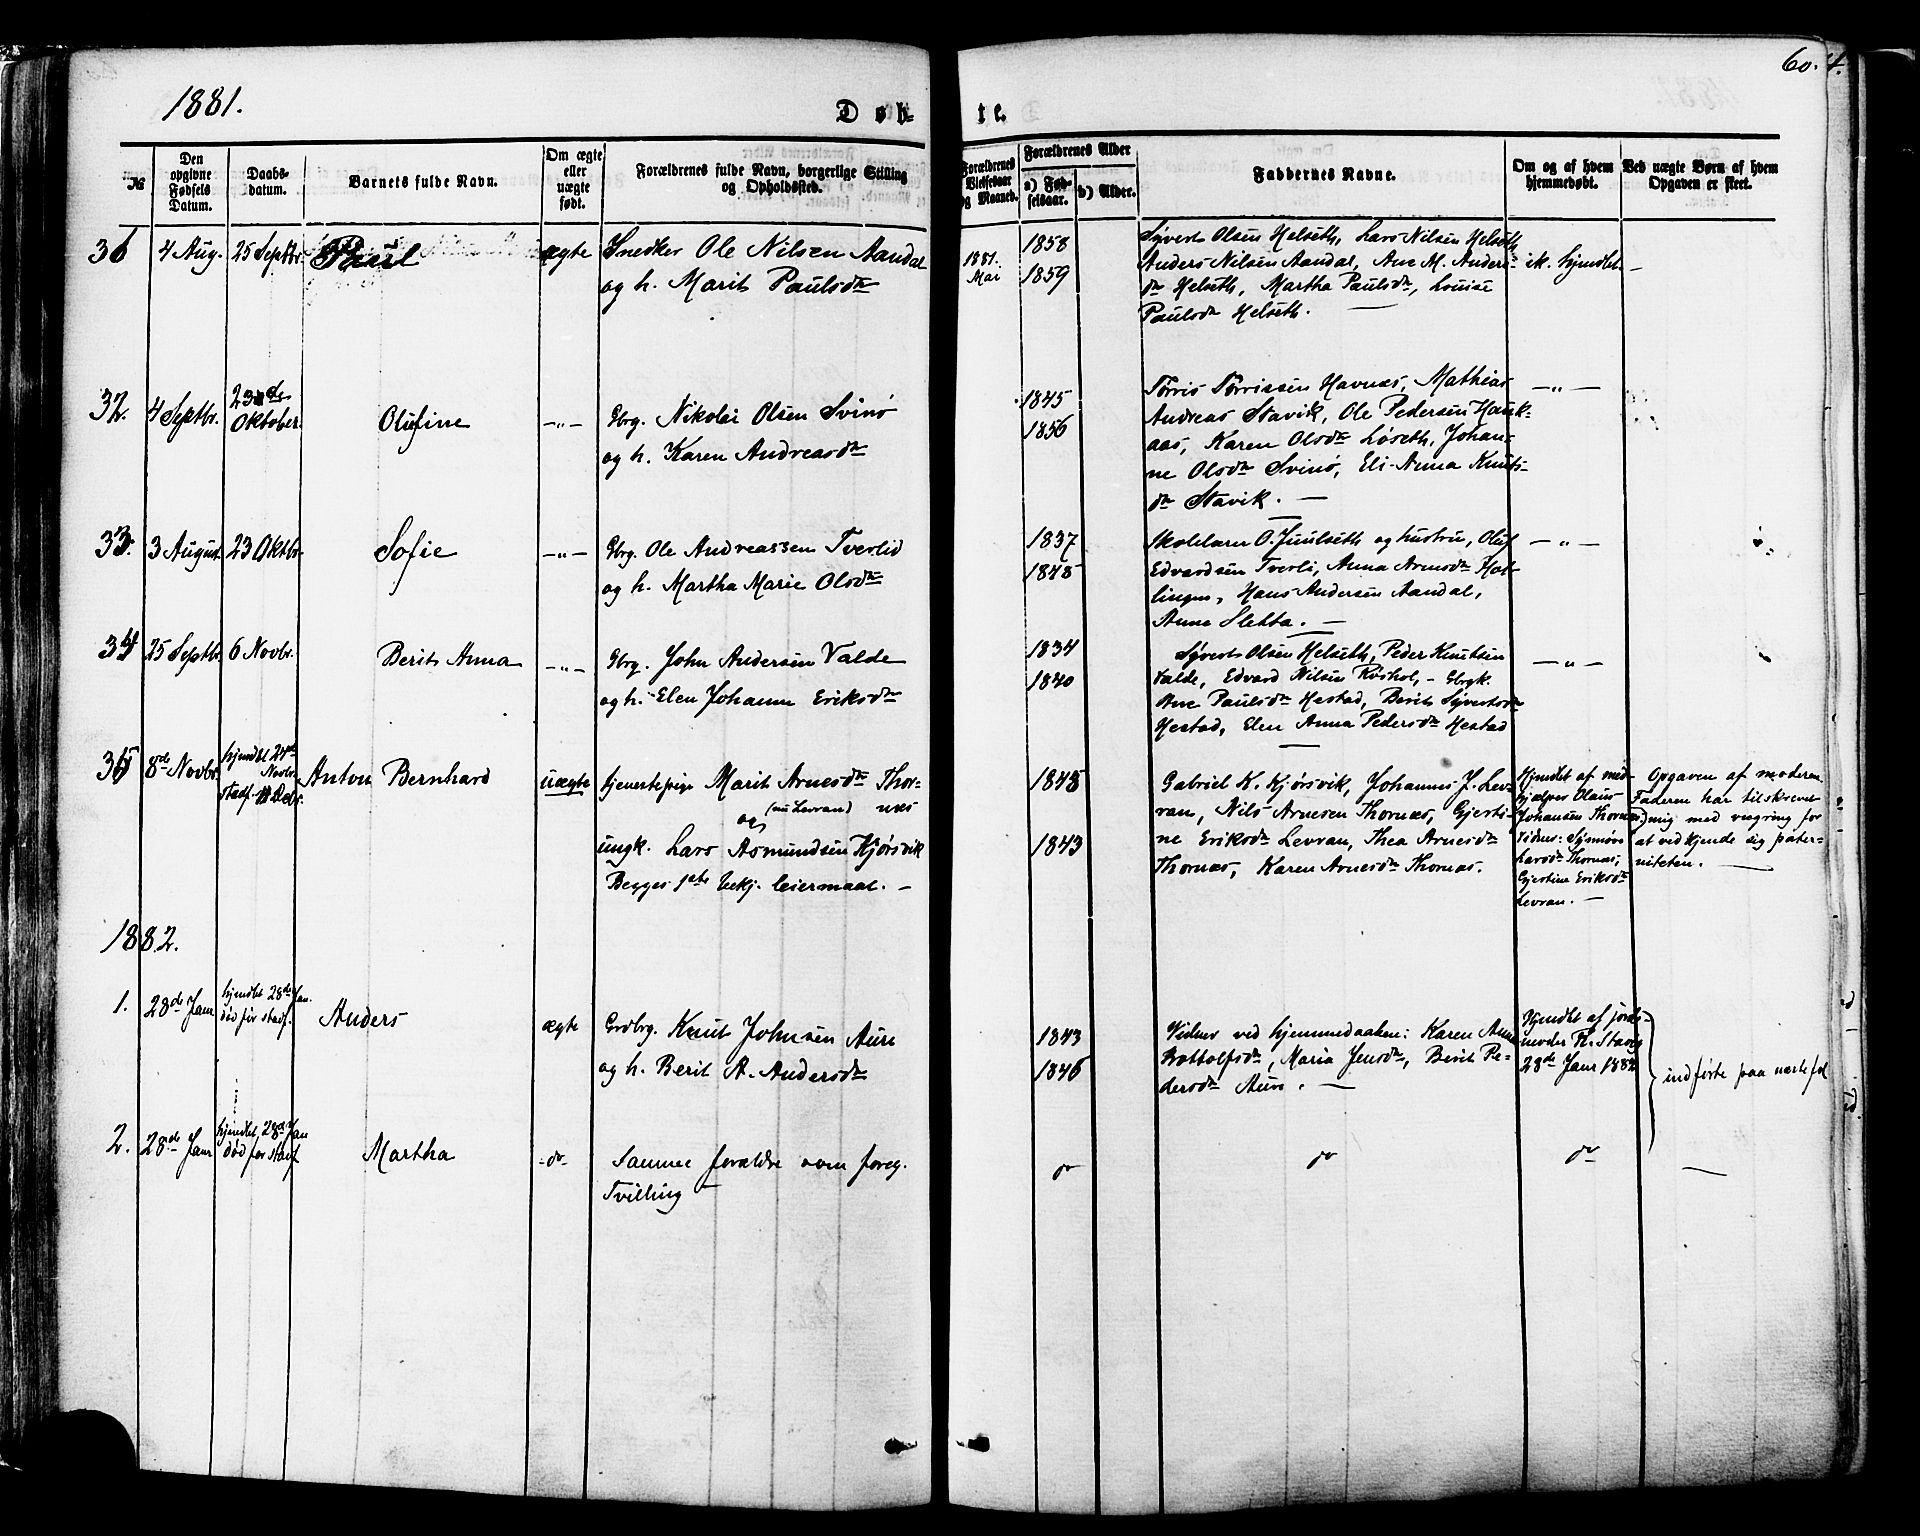 60.
1881.
Døbte.
№
Den opgivne Fødsels Datum.
Daabs-datum.
Barnets fulde Navn.
Om ægte eller uægte født.
Forældrenes fulde Navn, borgerlige Stilling og Opholdssted.
Forældrenes Vielsesaar og Maaned.
Forældrenes Alder
a) Fød-selsaar.
b) Alder.
Faddernes Navne.
Om og af hvem hjemmedøbt.
Ved uægte Børn af hvem Opgaven er skeet.
36 4 Aug. 25 Septbr. Paul ægte Snedker Ole Nilsen Aandal
og h. Marit Paulsdtr
1881. Mai
1858
1859
Syvert Olsen Helseth, Lars Nilsen Helseth
Anders Nilsen Aandal, Ane M. Anders-
dtr Helseth, Martha Paulsdtr, Louise
Paulsdtr Helseth. —
ik. hjemdbt. —
32. 4 Septbr. 23de Oktober. Olufine —„— Gbrg. Nikolai Olsen Svinø
og h. Karen Andreasdtr
1845
1856
Tørris Tørrissen Havnæs, Mathias
Andreas Stavik, Ole Pedersen Hauk-
aas, Karen Olsdtr Løseth, Johan-
ne Olsdtr Svinø, Eli-Anna Knuts-
dtr Stavik. —
—„—
33. 3 August. 23 Oktbr. Sofie —„— Gbrg. Ole Andreassen Tverlid
og h. Martha Marie Olsdtr
1837
1848
Skolelærer O. Juulseth og hustru, Oluf
Edvardsen Tverli, Anna Arnesdtr Hol-
lingen, Hans Andersen Aandal,
Anne Sletta. —
—„—
34 25 Septbr. 6 Novbr. Berit Anna —„— Gbrg. John Andersen Valde
og h. Elen Johanne Eriksdtr
1834
1840
Syvert Olsen Helseth, Peder Knutsen
Valde, Edvard Nilsen Røshol, - Gbrgk.
Ane Paulsdtr Hestad, Berit Syvertsdtr
Hestad, Elen Anna Pedersdtr Hestad
—„—
35 8de Novbr. hjemdbt 24de Novbr. stadf. Debr. Anton Bernhard uægte tjenestepige Marit Arnesdtr Thor-
(nu Levran) næs
og
ungk. Lars Asmundsen Kjørsvik
Begges 1ste bekj. leiermaal. —
1848
1843
Gabriel K. Kjørsvik, Johannes J. Lev-
ran, Nils Arnesen Thornæs, Gjerti-
ne Eriksdtr Levran, Thea Arnesdtr
Thornæs, Karen Arnesdtr Thornæs.
Hjemdbt af med-
hjælper Olaus
Johansen Thornæs,
Vidner: Synnøve
Larsdtr Thornæs,
Gjertine Eriksdtr
Levran. —
Opgaven af moderen
Faderen har tilskrevet
mig med vegring for
at vedkjende sig pater-
niteten. —
1882.
1. 28de Janr hjemdbt 28de Jan. død før stadf. Anders ægte Grdbrg. Knut Johnsen Aure
og h. Berit A. Andersdtr
1843
1846
Vidner ved hjemmedaaben: Karen Anne
Bottolfsdtr, Maria Jensdtr, Berit Pe-
dersdtr Aure. —
Hjemdbt af jords-
moder R. Stavig
28de Janr 1882
indførte paa næste fol
2. 28de Janr hjemdbt 28de Jan død før stadf Martha -do- Samme forældre som foreg.
Tvilling
do
do
do
—